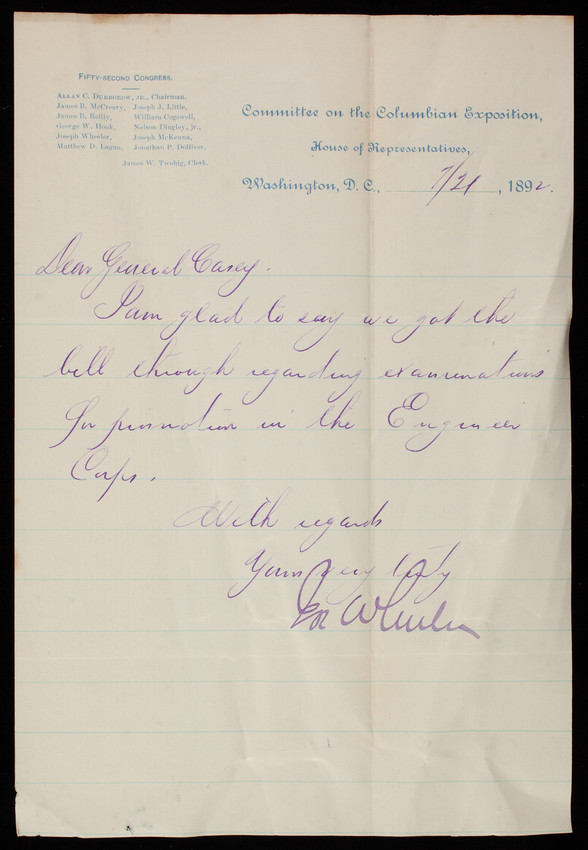 FIFTY-SECOND CONGRESS.
ALLAN C. DURBOROW, JR., Chairman.
James B. McCreary, Joseph J. Little,
James B. Reilly, William Cogswell,
George W. Houk, Nelson Dingley, jr.,
Joseph Wheeler, Joseph McKenna,
Matthew D. Lagan, Jonathan P. Dolliver,
James W. Twohig, Clerk.
Committee on the Columbian Exposition,
House of Representatives,
Washington, D. C., 7/21, 1892.
Dear General Casey.
I am glad to say we got the
bill through regarding examinations
for promotion in the Engineer
Corps.
With regards
Yours very truly
Jos Wheeler